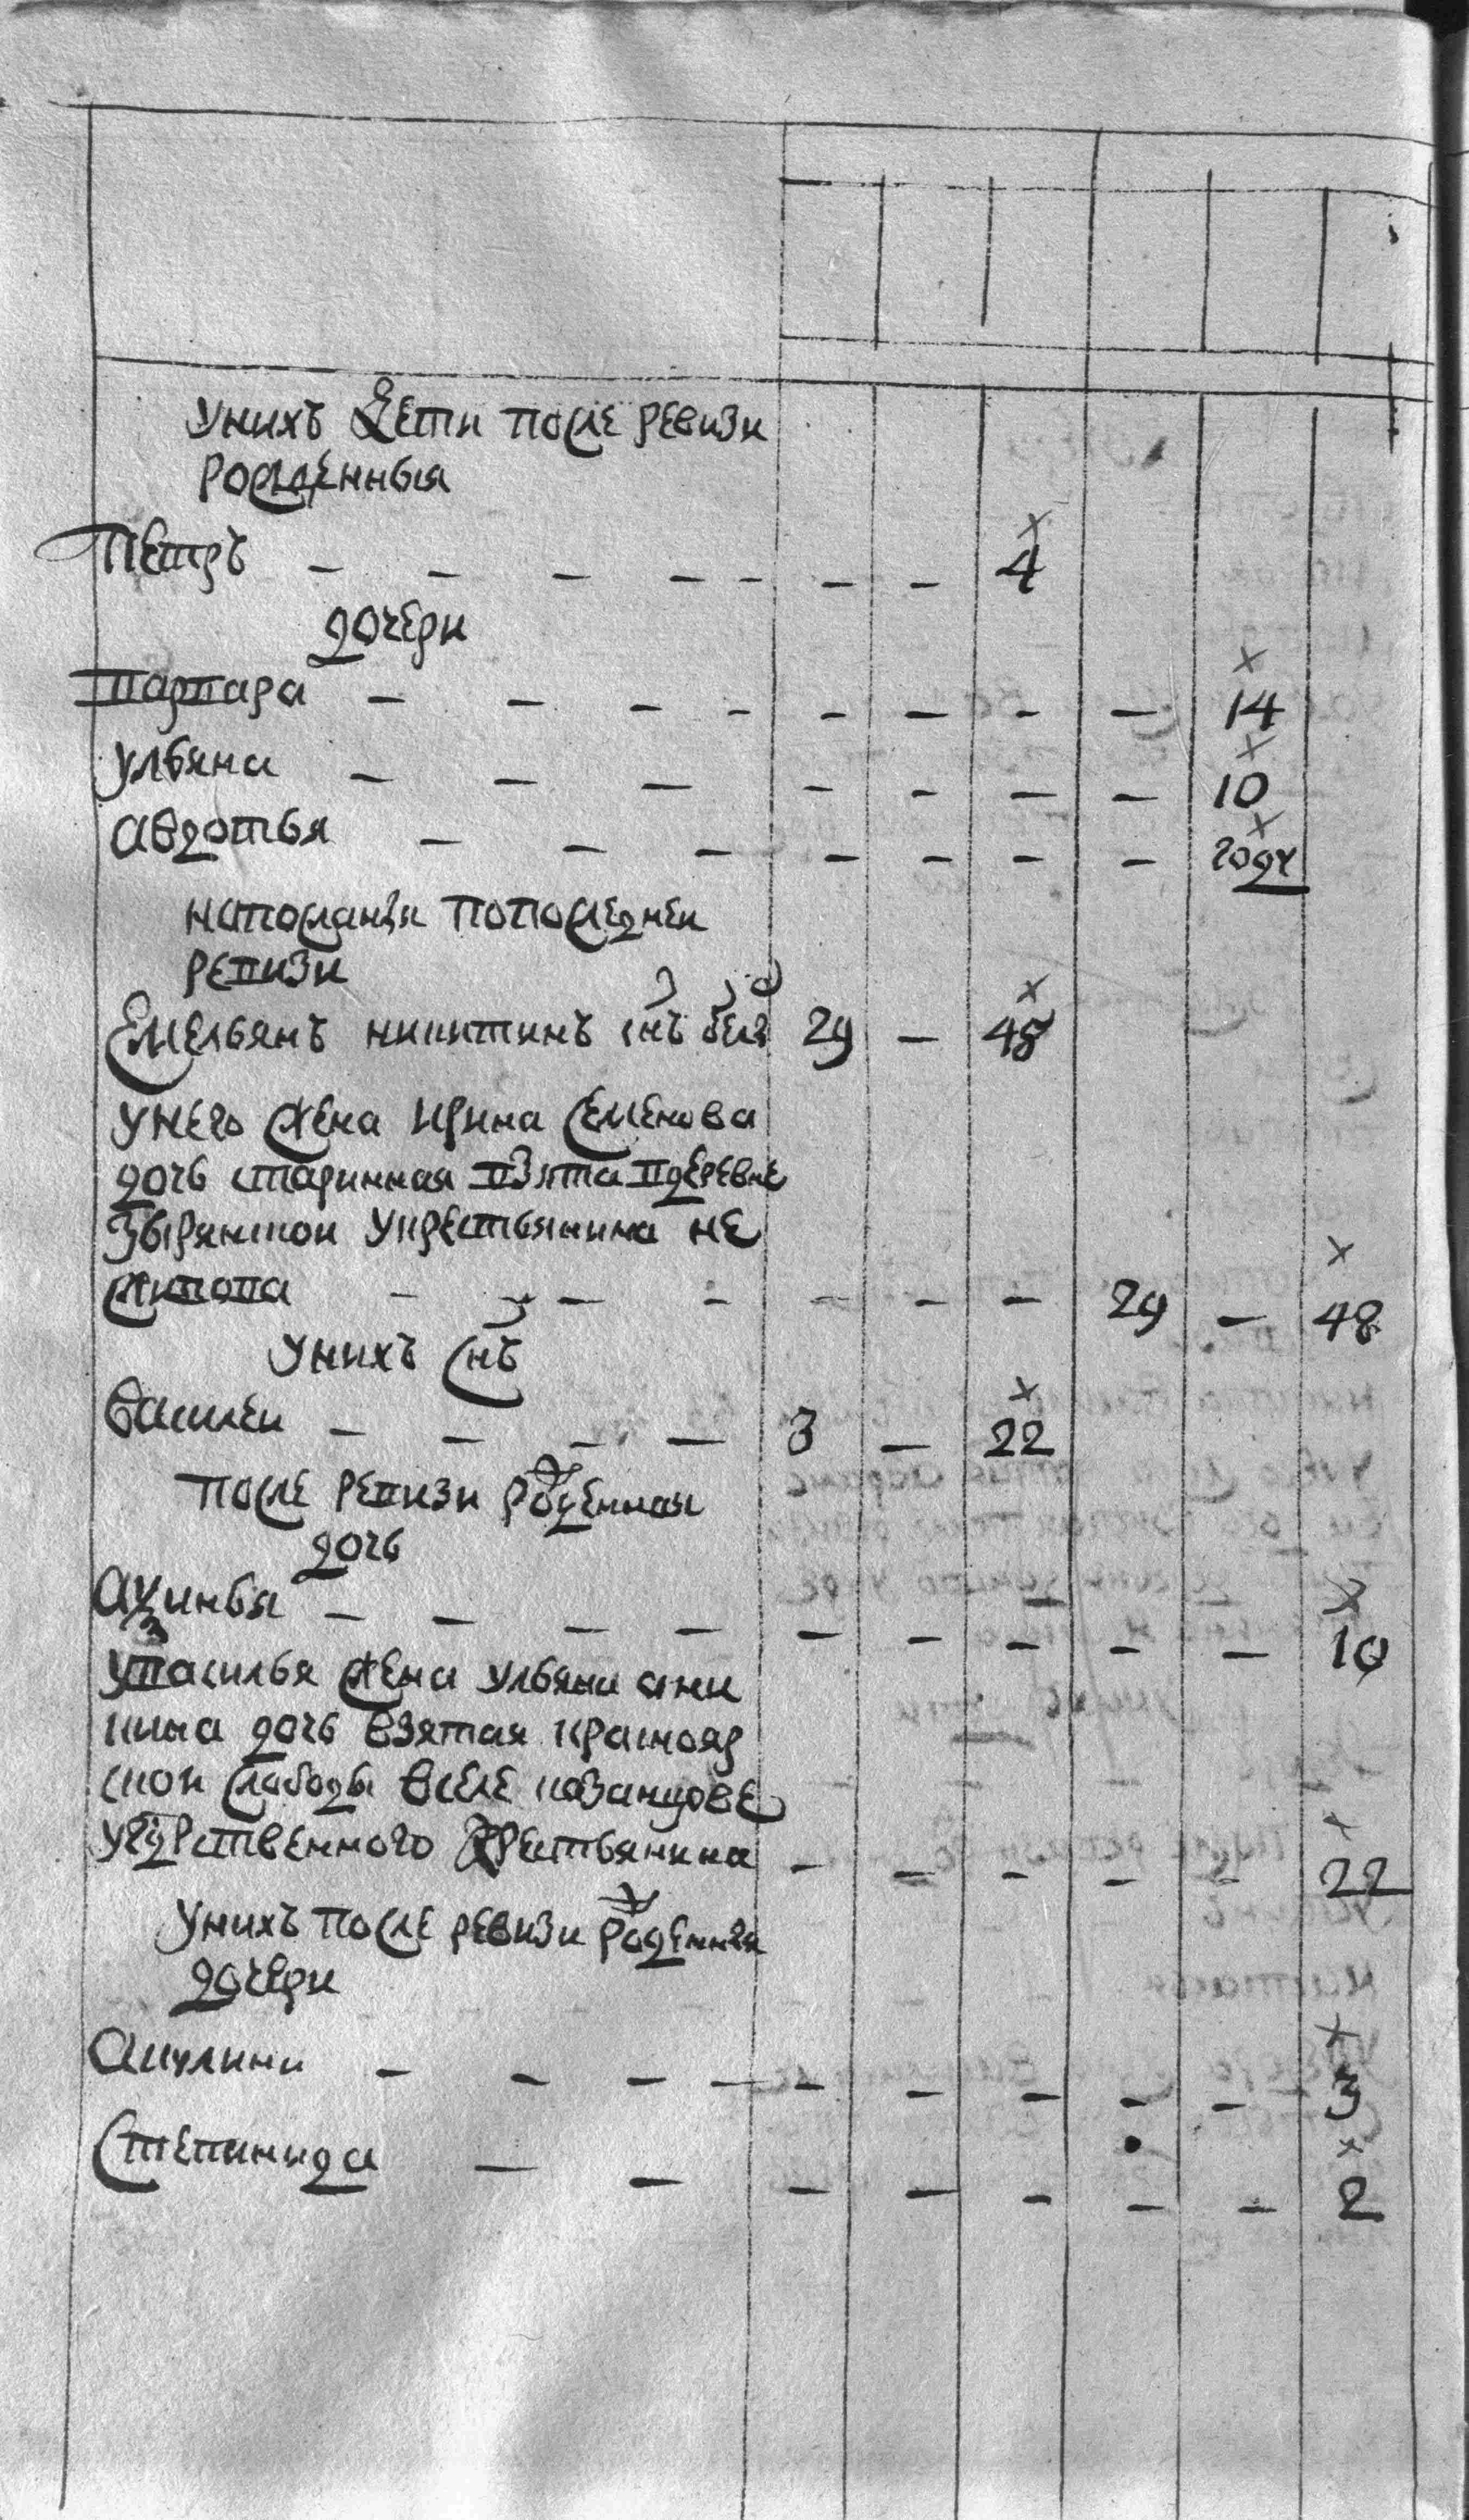 унихъ дети после ревизи
рожденныя
Петръ — — — — — — — 4
дочери
варвара — — — — — — — — 14
ульяна — — — — — — — 10
авдотья — — — — — — — годУ
написанъ попоследнеи
ревизи
Емельянъ никитинъ снъ 29 — 48
унего жена ирина семенова
дочь старинная взята вдеревне
Зырянкои укрестьянина не
жипова — — — — — — — 29 — 48
унихъ снъ
василеи — — — — 3 — 22
после ревизи роденная
дочь
аксинья — — — — — — — — — 10
увасилья жена ульяна ани
кина дочь взятая краснояр
скои слободы вселе казанцове
угдрственного крестьянина — — — — — 22
унихъ после ревизи роденныя
дочери
акулина — — — — — — — — — 3
степанида — — — — — — — 2